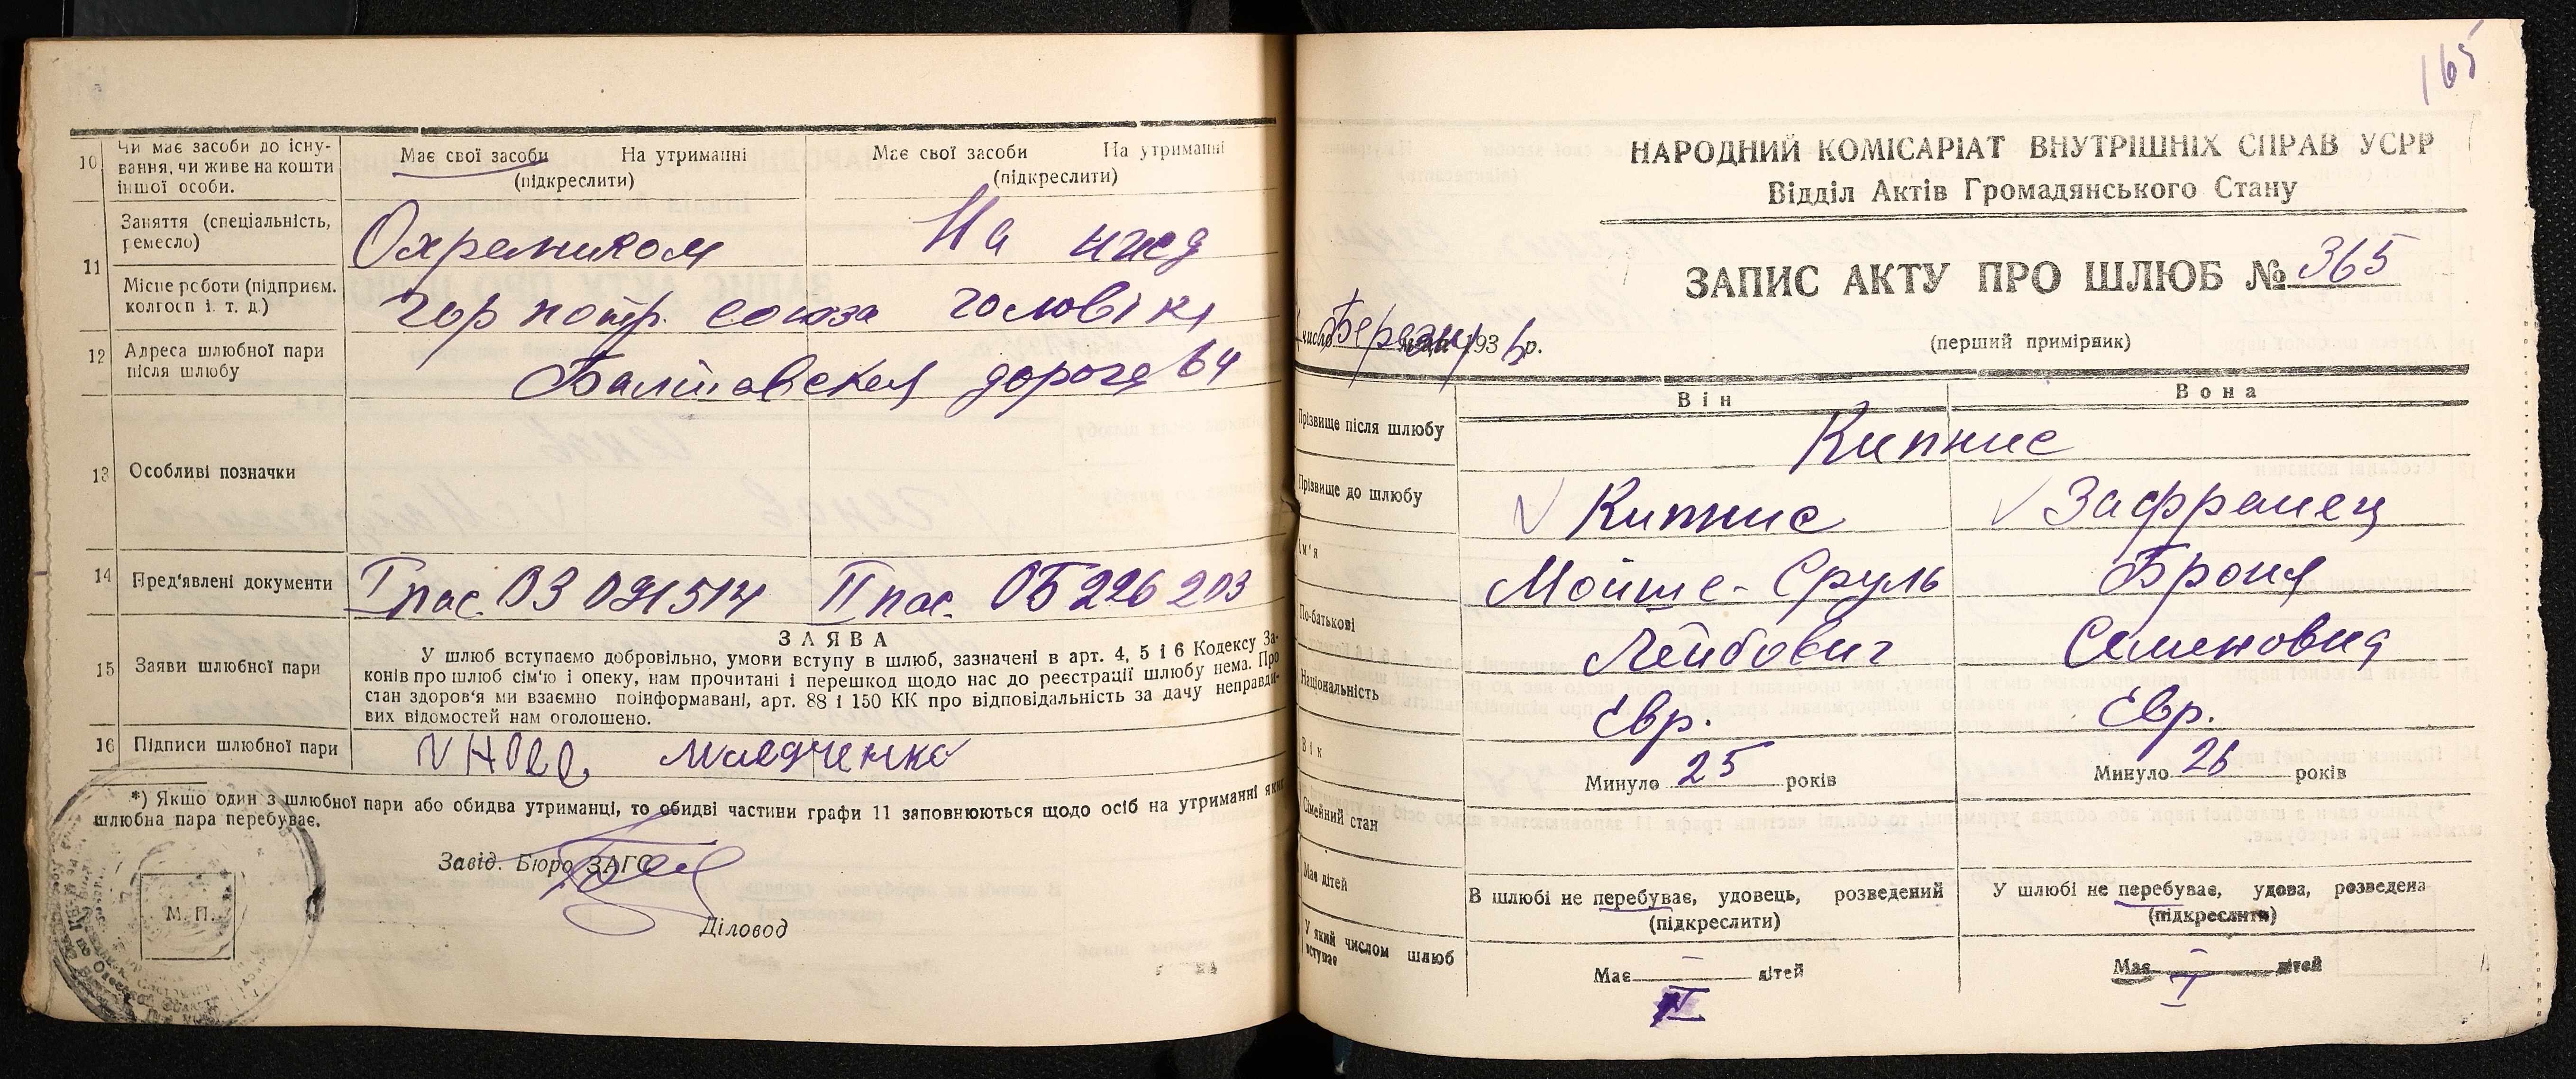 10 Чи має засоби до існу-
вання, чи живе на кошти
іншої особи.
Має свої засоби На утриманні
(підкреслити)
Має свої засоби На утриманні
(підкреслити)
11 Заняття (спеціальність,
ремесло)
Охраником
На ижд
Місце роботи (підприєм.
колгосп і. т. д.)
Гор потр. союза
головікі
12 Адреса шлюбної пари
після шлюбу
Балтовская дорога 64
13 Особливі позначки
14 Пред'явлені документи
I пас. ОЗ 091514 II пас. ОБ 226203
15 Заяви шлюбної пари
ЗАЯВА
У шлюб вступаємо добровільно, умови вступу в шлюб, зазначені в арт. 4, 5 і 6 Кодексу За-
конів про шлюб сім'ю і опеку, нам прочитані і перешкод щодо нас до реєстрації шлюбу нема. Про
стан здоров'я ми взаємно поінформавані, арт. 88 і 150 КК про відповідальність за дачу неправди-
вих відомостей нам оголошено.
16 Підписи шлюбної пари
*) Якщо один з шлюбної пари або обидва утриманці, то обидві частини графи 11 заповнюються щодо осіб на утриманні яких
шлюбна пара перебуває.
Завід. Бюро ЗАГС
Діловод
М. П.
165
НАРОДНИЙ КОМІСАРІАТ ВНУТРІШНІХ СПРАВ УСРР
Відділ Актів Громадянського Стану
ЗАПИС АКТУ ПРО ШЛЮБ № 365
число Березня 1936 р.
(перший примірник)
Він Вона
Прізвище після шлюбу
Кипнис
Прізвище до шлюбу
Кипнис Зафранец
Ім'я
Мойше-Сруль Броня
По-батькові
Лейбович Семеновна
Національність
Євр. Євр.
Вік
Минуло 25 років Минуло 26 років
Сімейний стан
Має дітей
В шлюбі не перебуває, удовець, розведений
(підкреслити)
У шлюбі не перебуває, удова, розведена
(підкреслити)
У який числом шлюб
вступає
Має — дітей Має — дітей
I